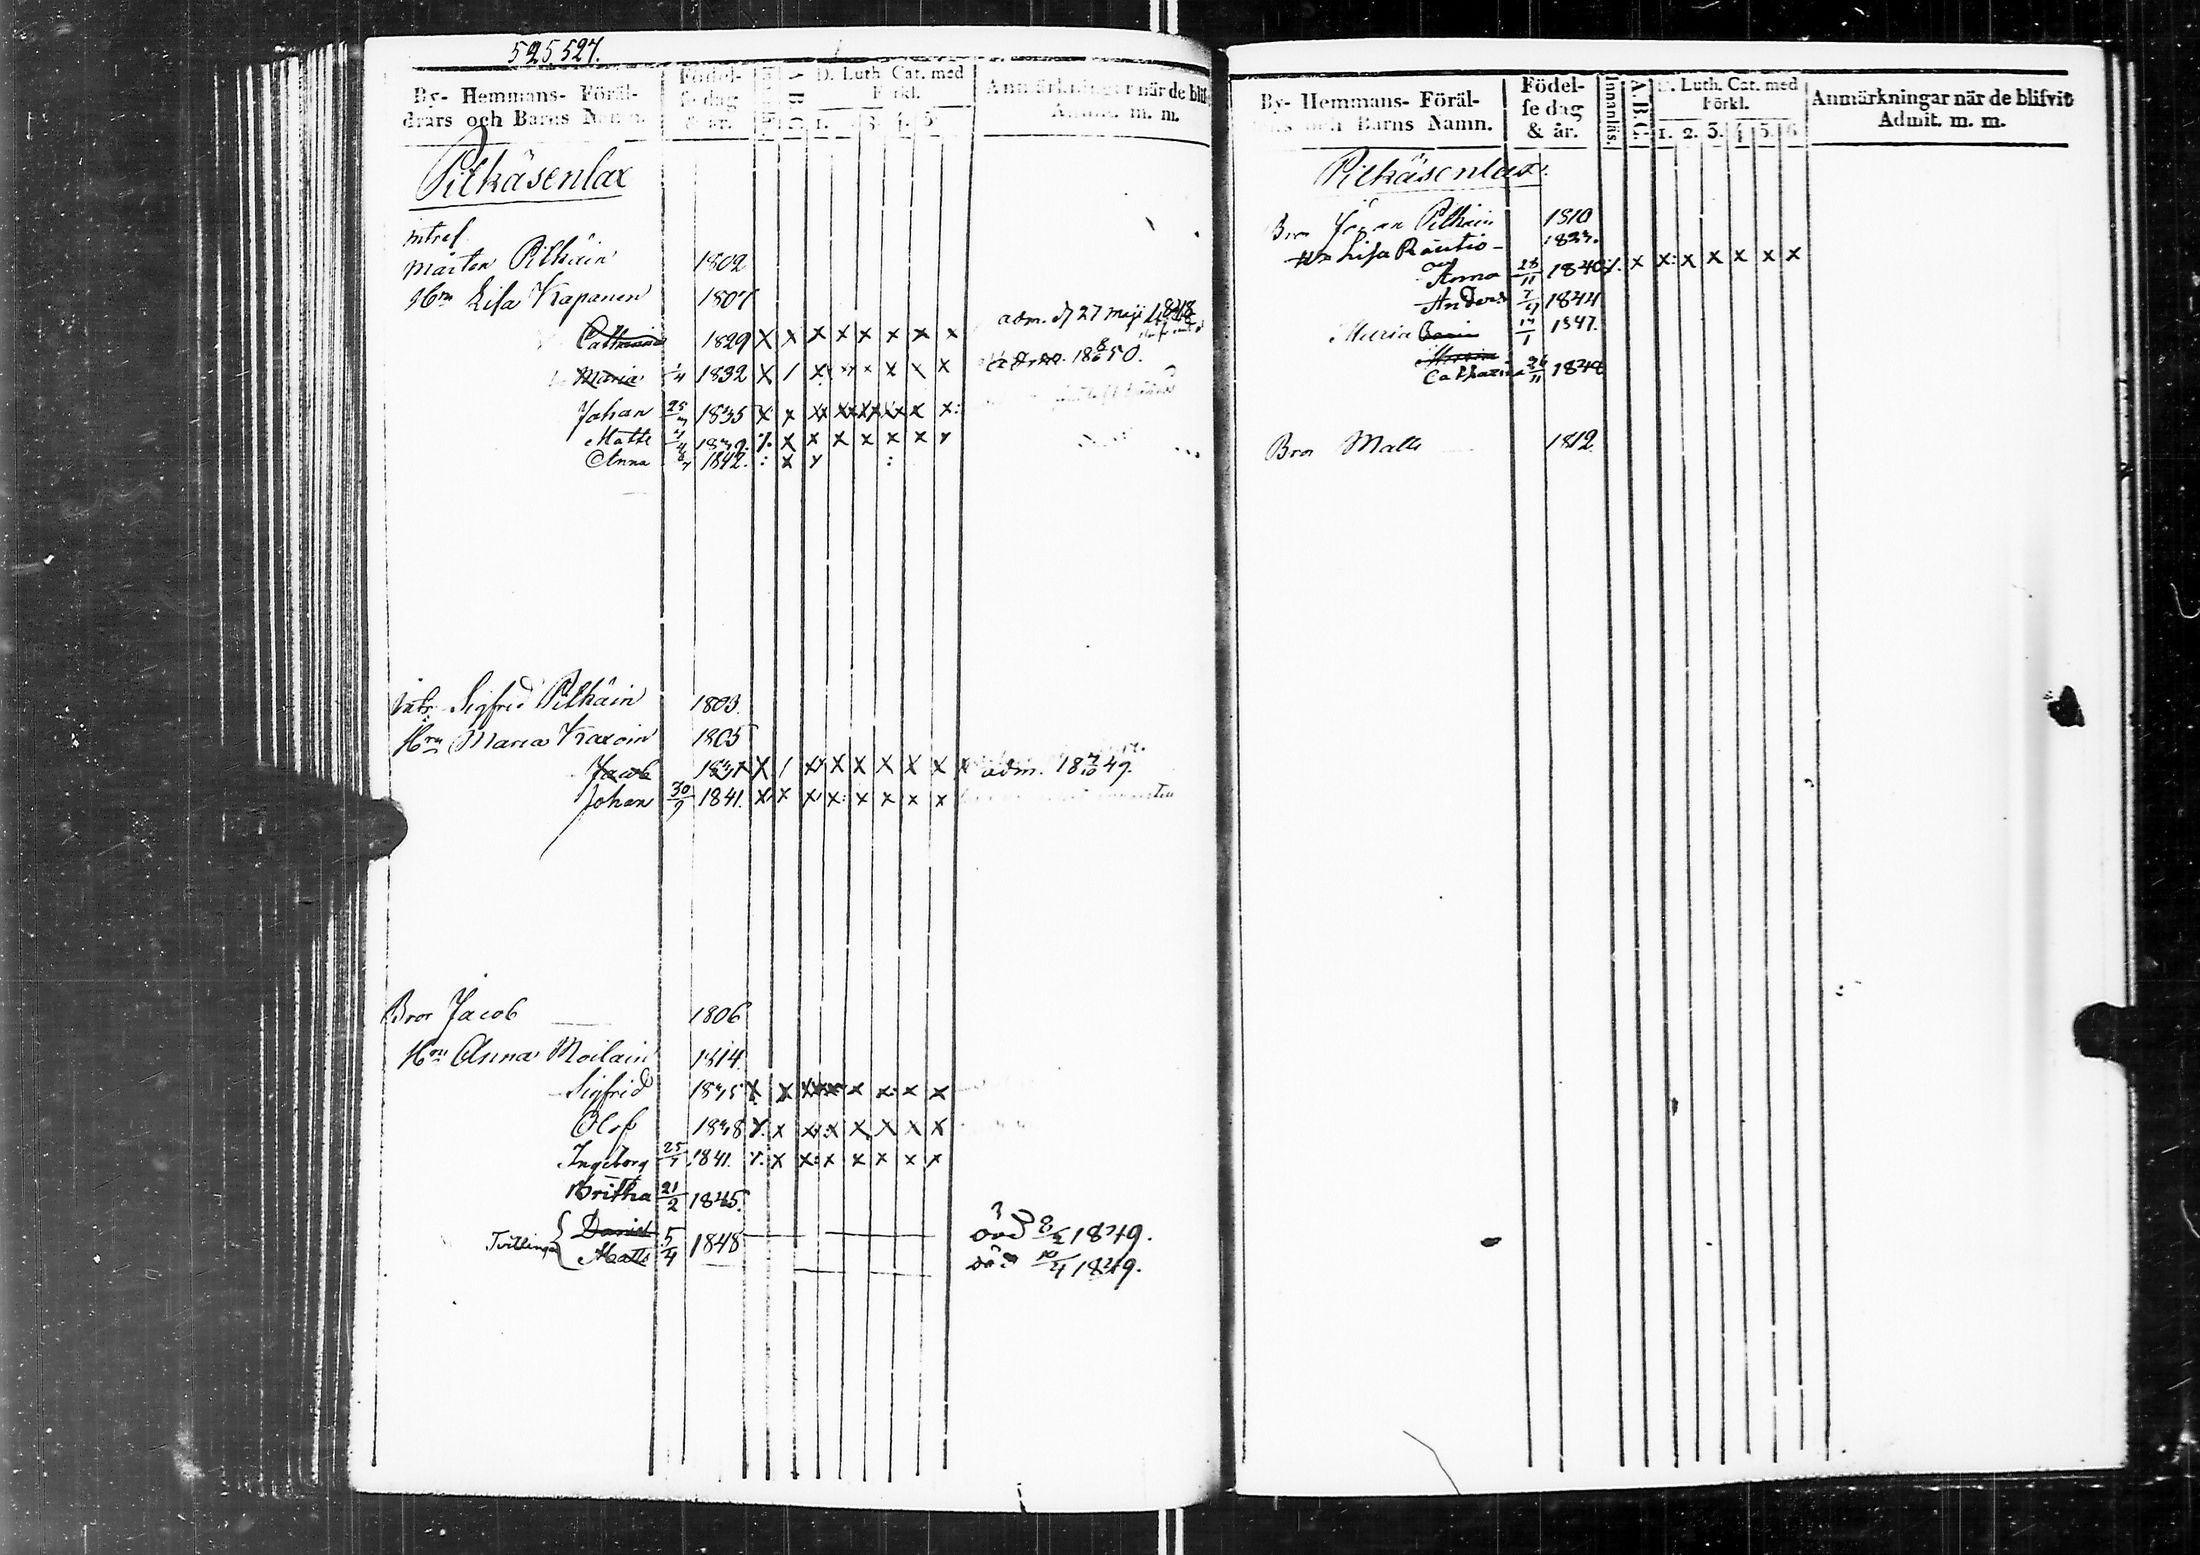 525 527.
By- Hemmans- Föräl-
drars och Barns Namn.
Födel-
se dag
& år.
D. Luth. Cat. med
Förkl.
Anmärkningar när de
Admit. m. m.
Pitkäsenlax
intres
Mårten Pitkäin 1802
Hru Lisa Kapanen 1807
Cathrina 1829 X X X X X X X X adm. d 27 maji 1848
Maria 1832 X / X X X X X X 18 50.
Johan 25 1835 X X X X X X X X
Matts 1839 X X X X X X X
Anna 1842. X
intr Sigfred Pitkäin 1803.
Hru Maria Karoin 1805
Jacob 1831 X / X X X X X X adm. 18 49.
Johan 30/9 1841. X X X X X X X X
Bror Jacob 1806
Hru Anna Moilain 1814
Sigfrid 1835 X X X X X X X X
Olof 1838 X X X X X X X X
Ingeborg 25 1841. X X X X X X X
Britha 21/2 1845.
Tvillingar Daniel 5/4 1848 död 8/2 1849.
Matts död 10/4 1849.
By- Hemmans- Föräl-
och Barns Namn.
Födel-
se dag
& år.
Innanläs.
A.B.C.
D. Luth. Cat. med
Förkl.
1. 2. 3. 4 5. 6
Anmärkningar när de blifvit
Admit. m. m.
Pitkäsenlax.
Bror Jöran Pitkäin 1810
Hru Lisa Rautio 1823.
Anna 28/11 1840 X X X X X X X
Anders 1844
Maria 1847.
Catharina 26/11 1848
Bror Matts 1812